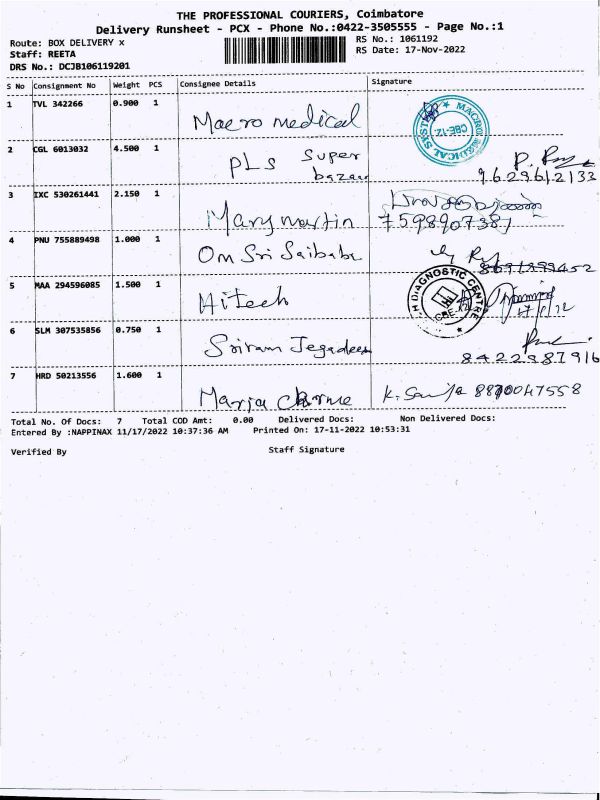 THE PROFESSIONAL COURIERS, Coimbatore
Delivery Runsheet - PCX - Phone No.:0422-3505555 - Page No.:1
Route: BOX DELIVERY x
RS No.: 1061192
Staff: REETA
RS Date: 17-Nov-2022
DRS No.: DCJB106119201
S No Consignment No Weight PCS Consignee Details Signature
1 TVL 342266 0.900 1 Macro medical
CBE-12
2 CGL 6013032 4.500 1 PLS Super bazaar
9629612133
3 IXC 530261441 2.150 1 Mary martin 7598907387
4 PNU 755889498 1.000 1 Om Sri Saibaba
5 MAA 294596085 1.500 1 Hitech
H DIAGNOSTIC CENTRE
6 SLM 307535856 0.750 1 Sriram Jegadees
8422987916
7 HRD 50213556 1.600 1 Maria 8870047558
Total No. Of Docs: 7 Total COD Amt: 0.00 Delivered Docs: Non Delivered Docs:
Entered By :NAPPINAX 11/17/2022 10:37:36 AM Printed On: 17-11-2022 10:53:31
Verified By Staff Signature